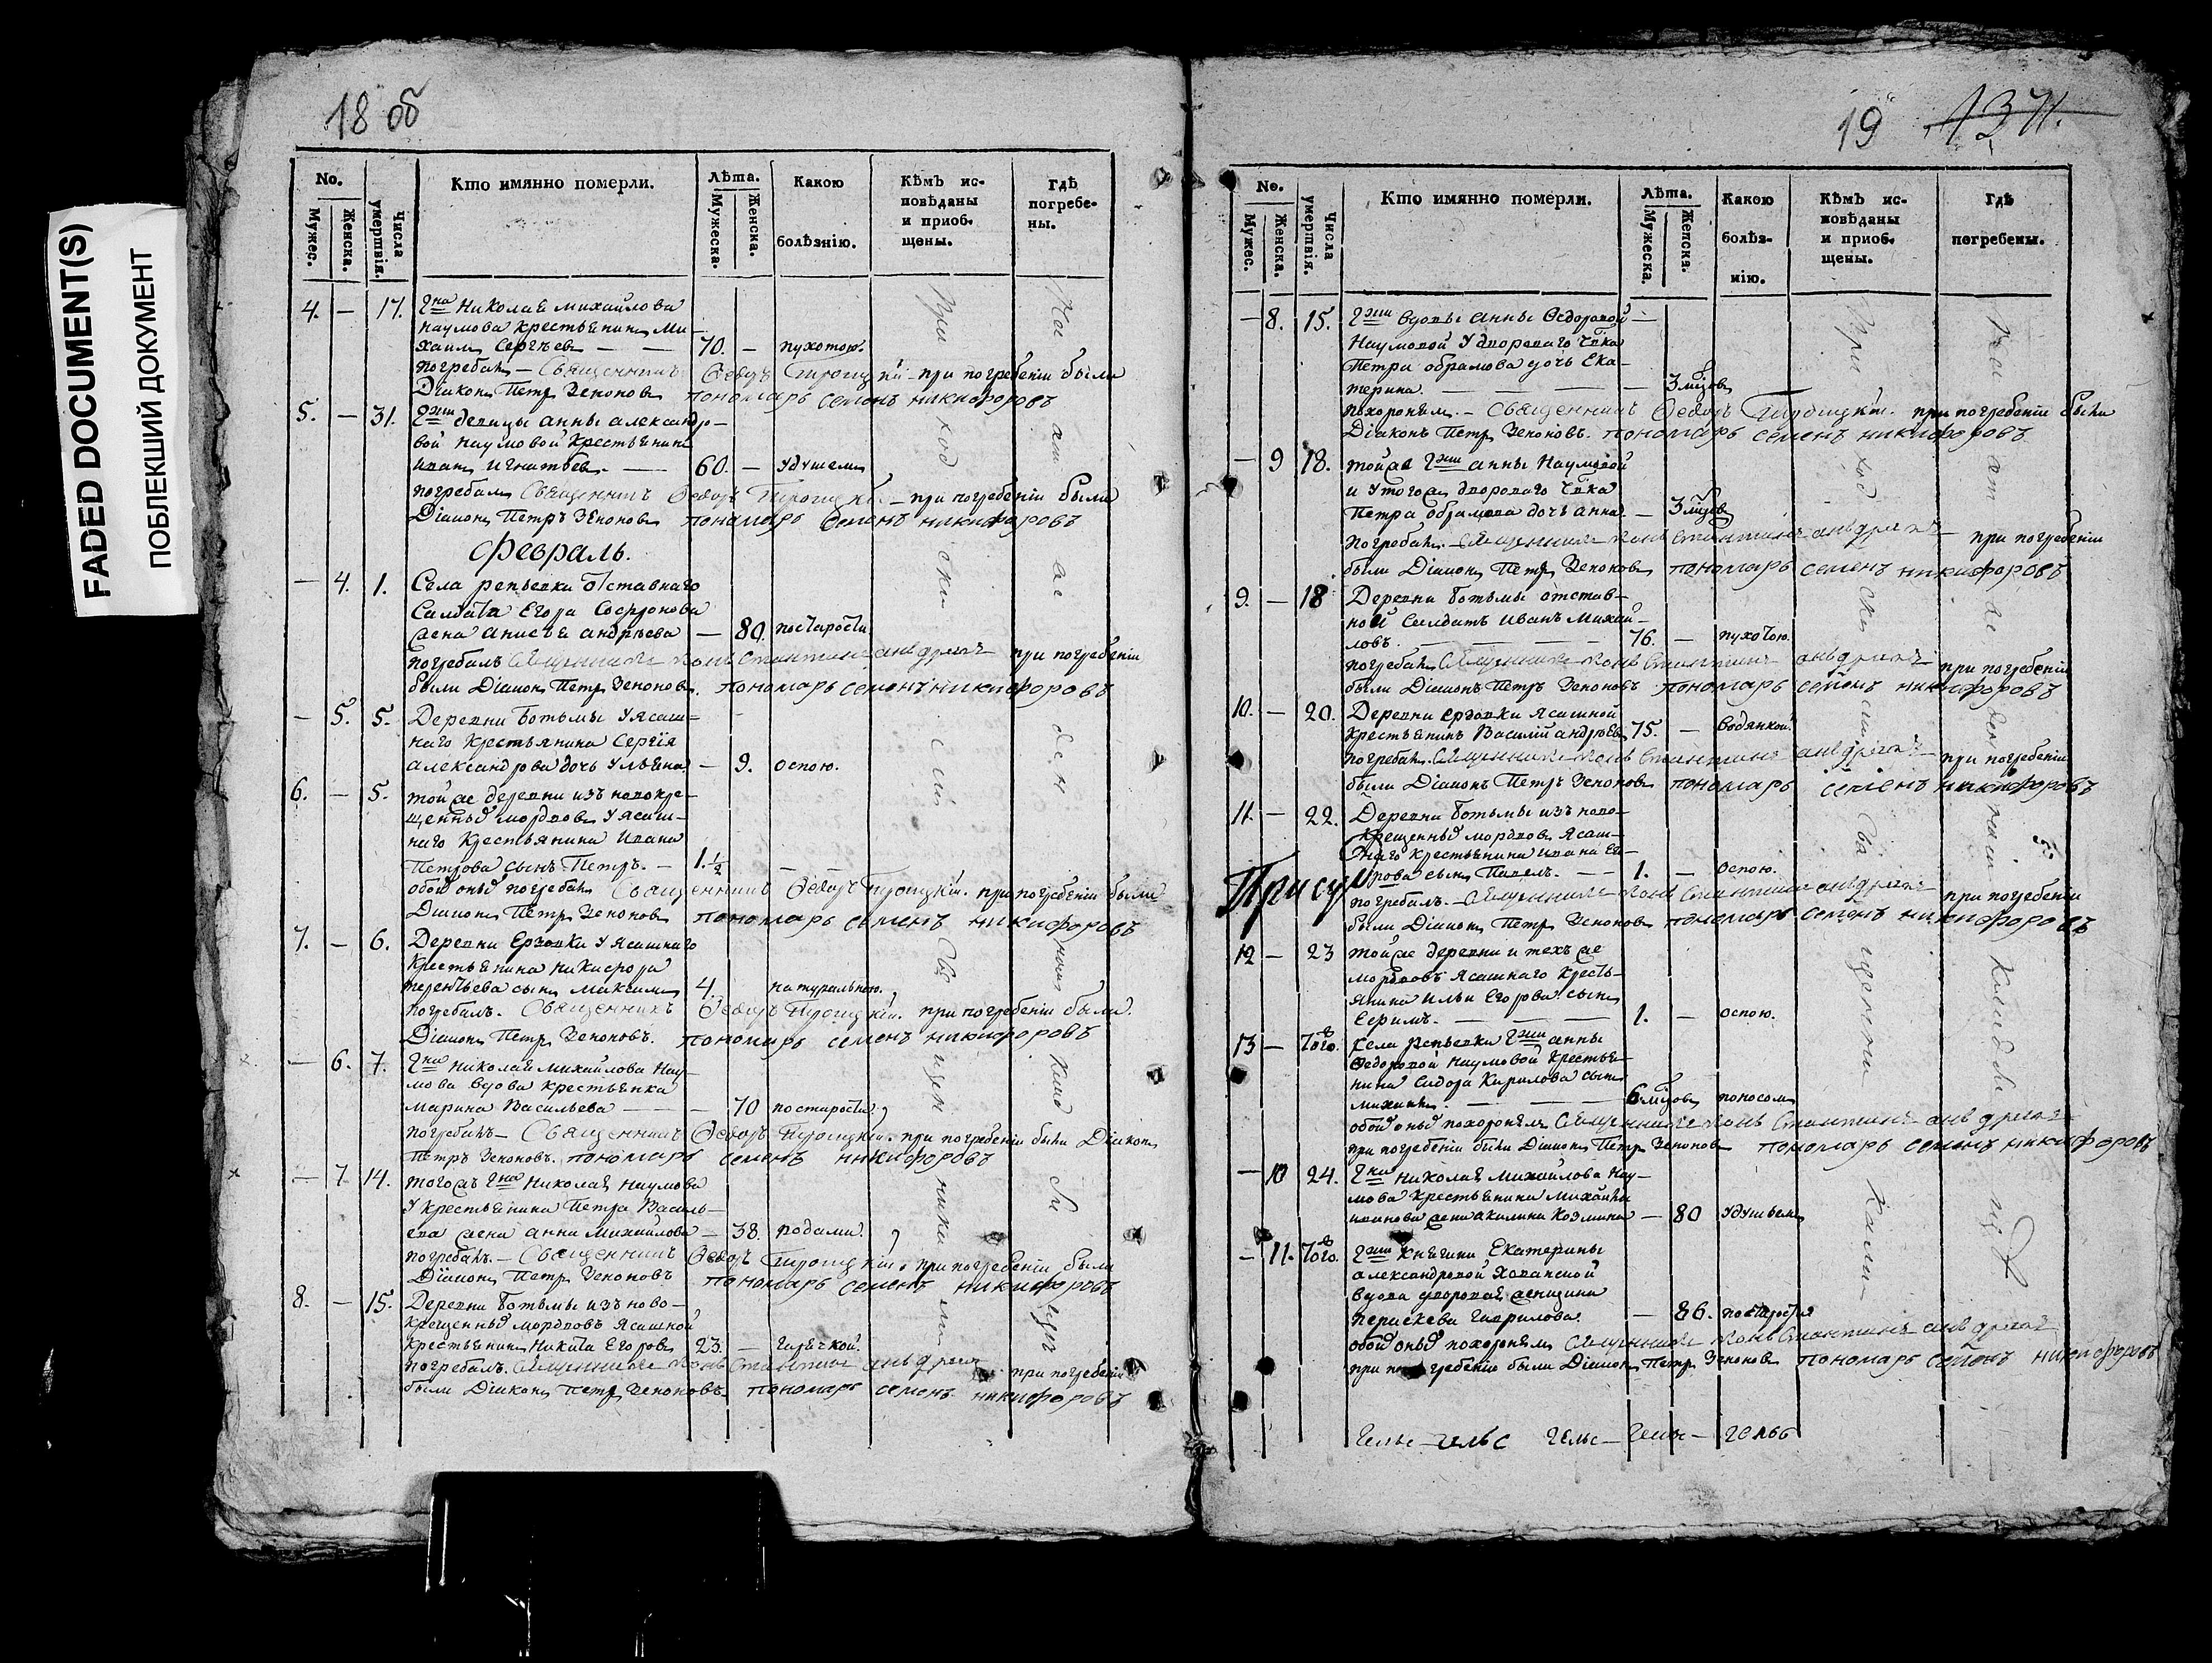 FADED DOCUMENT(S)
ПОБЛЕКШИЙ ДОКУМЕНТ
18 об
No.
Мужес.
Женска.
Числа умертвія.
Кто имянно померли.
Лѣта.
Мужеска.
Женска.
Какою болѣзнію.
Кѣмъ исповѣданы и приобщены.
Гдѣ погребены.
4. — 17. Гна Николая Михайлова
Наумова крестьянинъ Ми-
хаилъ Сергѣевъ — — 70. — пухотою.
погребалъ — Священникъ Ѳедоръ Троицкій — при погребеніи были
Діаконъ Петръ Зеноновъ пономарь семенъ никифоровъ
5. — 31. Гжи девицы анны александро-
вой Наумовой Крестьянинъ
иванъ игнатьевъ. — 60. — удушьемъ
погребалъ Священникъ Ѳедоръ Троицкій — при погребеніи были
Діаконъ Петръ Зеноновъ пономарь семенъ никифоровъ
Февраль.
— 4. 1. Села репьевки отставнаго
Салдата Егора Софронова
жена анисья андрѣева — 80. постарости
погребалъ Священникъ Констаньтинъ аньдреевъ при погребеніи
были Діаконъ Петръ Зеноновъ. пономарь семенъ никифоровъ
— 5. 5. Деревни Ботьмы у ясаш-
наго крестьянина Сергія
александрова дочь Ульяна. — 9. оспою.
6. — 5. той же деревни изъ новокре-
щеныхъ мордвовъ у ясаш-
наго Крестьянина Ивана
Петрова сынъ Петръ. — 1.½ — —
обоихъ оныхъ погребалъ Священникъ Ѳедоръ Троицкій. при погребеніи были
Діаконъ Петръ Зеноновъ пономарь семенъ никифоровъ
7. — 6. Деревни Ерзовки у ясашнаго
Крестьянина Никифора
терентьева сынъ Максимъ 4. натуральною.
погребалъ. Священникъ Ѳедоръ Троицкій. при погребеніи были.
Діаконъ Петръ Зеноновъ. пономарь семенъ никифоровъ
— 6. 7. Гна Николая Михайлова Нау-
мова вдова крестьянка
марина Васильева — — 70 постарости.
погребалъ — Священникъ Ѳедоръ Троицкій. при погребеніи были Діаконъ
Петръ Зеноновъ. пономарь семенъ никифоровъ
— 7 14. тогожъ Гна Николая Наумова
у крестьянина Петра Василь-
ева жена анна Михайлова — 38. родами.
погребалъ. — Священникъ Ѳедоръ Троицкій. при погребеніи были
Діаконъ Петръ Зеноновъ пономарь семенъ никифоровъ
8. — 15. Деревни Ботьмы изъ ново-
крещеныхъ мордвовъ Ясашной
крестьянинъ Никита Егоровъ 23. — горячкой.
погребалъ. Священникъ Констаньтинъ аньдреевъ при погребеніи
были Діаконъ Петръ Зеноновъ пономарь семенъ никифоровъ
Приходскими Священниками
На отведенномъ Кладбищѣ
19 1371.
No.
Мужес.
Женска.
Числа умертвія.
Кто имянно померли.
Лѣта.
Мужеска.
Женска.
Какою болѣзнію.
Кѣмъ исповѣданы и приобщены.
Гдѣ погребены.
— 8. 15. Гжи вдовы анны Ѳедоровой —
Наумовой у двороваго чвка
Петра обрамова дочь Ека-
терина. — — — 3 мцовъ
похоронялъ. — Священникъ Ѳедоръ Троицкій. при погребеніи были
Діаконъ Петръ Зеноновъ. пономарь семенъ никифоровъ
— 9 18. той же Гжи анны Наумовой
и у тогожъ двороваго чвка
Петра обрамова дочь анна. — 3 мцовъ
Погребалъ. — Священникъ Констаньтинъ аньдреевъ при погребеніи
были Діаконъ Петръ Зеноновъ пономарь семенъ никифоровъ
9. — 18 Деревни Ботьмы отстав-
ной Салдатъ Иванъ Михай-
ловъ. — 76. — пухотою.
погребалъ Священникъ Констаньтинъ аньдреевъ при погребеніи
были Діаконъ Петръ Зеноновъ пономарь семенъ никифоровъ
10. — 20. Деревни Ерзовки Ясашной
Крестьянинъ Василій андрѣевъ 75. — водянкой.
погребалъ. Священникъ Констаньтинъ аньдреевъ при погребеніи
были Діаконъ Петръ Зеноновъ пономарь семенъ никифоровъ
11. — 22. Деревни Ботьмы изъ ново-
крещеныхъ мордвовъ Ясаш-
наго крестьянина Ивана Его-
рова сынъ Павелъ. — 1. — Оспою.
Прису
погребалъ. — Священникъ Констаньтинъ аньдреевъ при погребеніи
были Діаконъ Петръ Зеноновъ пономарь семенъ никифоровъ
12 — 23 той же деревни и техъ же
мордвовъ Ясашнаго кресть-
янина Ильи Егорова сынъ
Ееримъ. — 1. — Оспою.
13 — того. Села Репьевки Гжи анны
Ѳедоровой Наумовой Крестья-
нина Сидора Кирилова сынъ
михаилъ. — 6 мцовъ поносомъ
обоихъ оныхъ похоронялъ Священникъ Констаньтинъ аньдреевъ
при погребеніи были Діаконъ Петръ Зеноновъ пономарь семенъ никифоровъ
— 10 24. Гна Николая Михайлова Нау-
мова крестьянина Михайлы
иванова жена акилина Козмина — 80 удушьемъ
— 11. того. Гжи Княгини Екатерины
александровой Хованской
вдова дворовая женщина
перискева Гаврилова. — 86. постарости
обоихъ оныхъ похоронялъ Священникъ Констаньтинъ аньдреевъ
при погребеніи были Діаконъ Петръ Зеноновъ пономарь семенъ никифоровъ
Приходскими Священниками
На отведенномъ Кладбищѣ